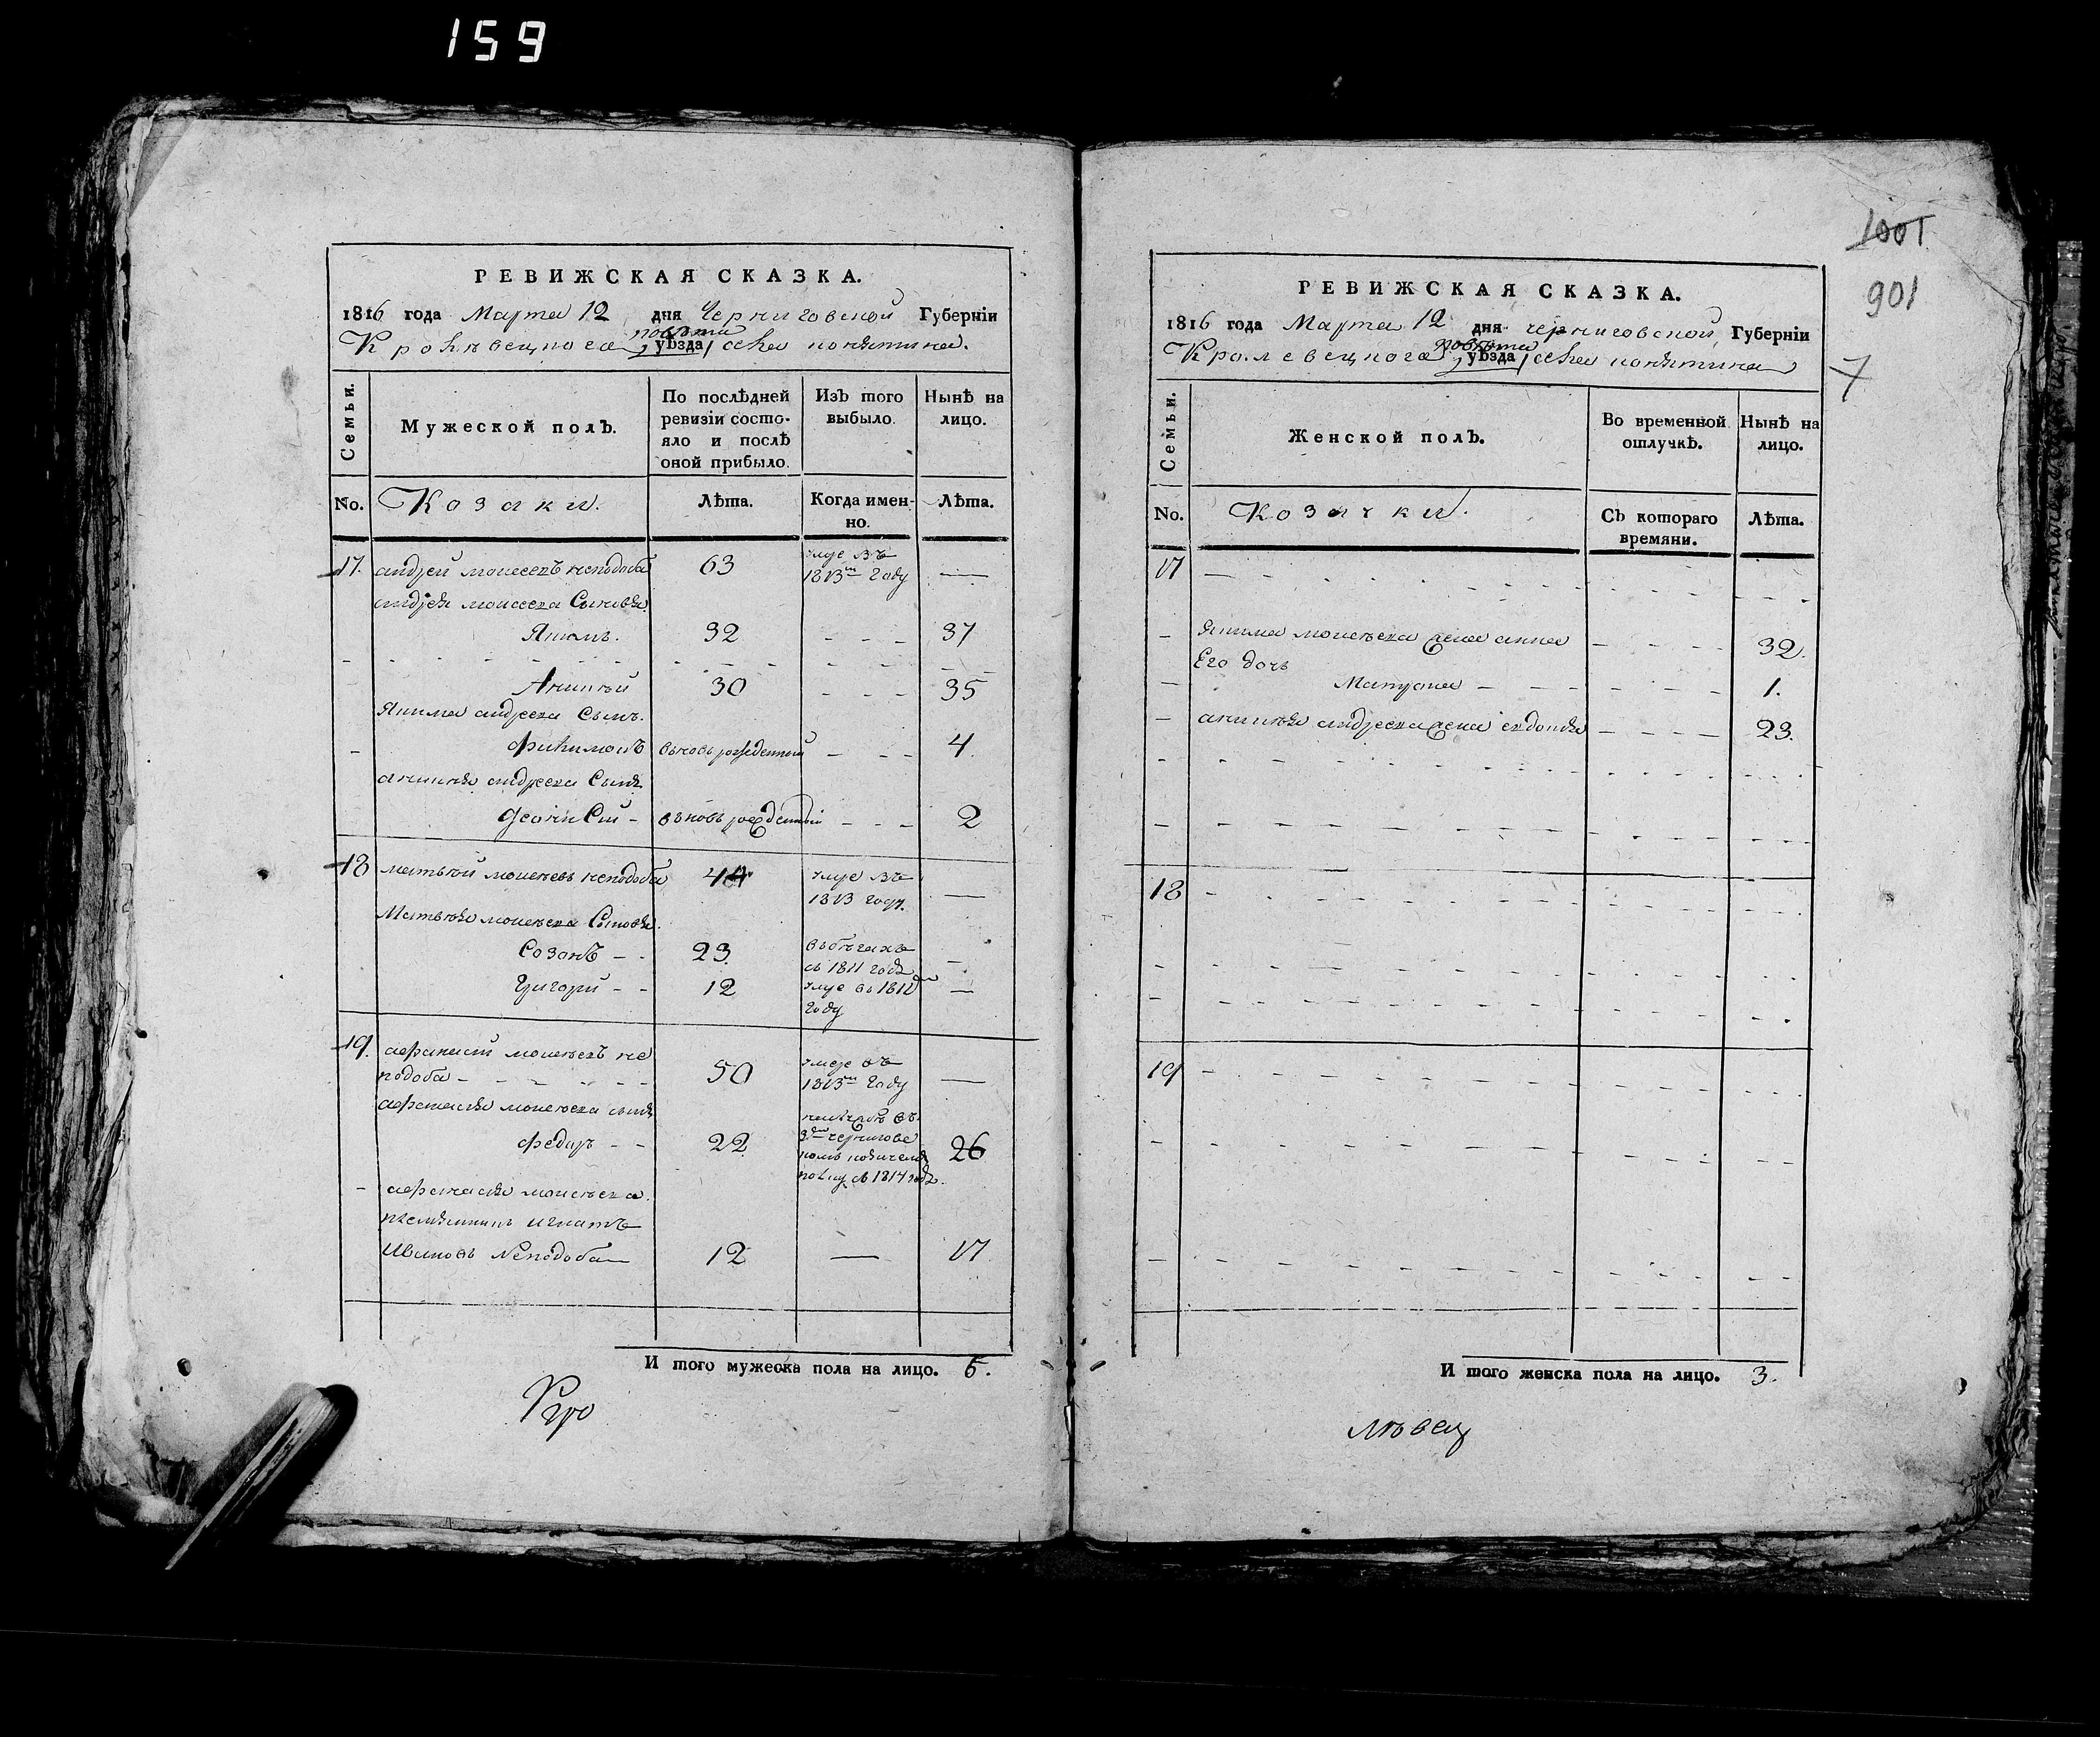 159
РЕВИЖСКАЯ СКАЗКА.
1816 года Марта 12 дня Черниговской Губерніи
повѣта
Кролѣвецкого уѣзда села
Семьи.
Мужеской полЪ.
По послѣдней ревизіи состояло и послѣ оной прибыло.
ИзЪ того выбыло.
Нынѣ на лицо.
No.
Козаки.
Лѣта.
Когда именно.
Лѣта.
17. андрей моисеевъ неподоба 63 умре въ 1813м году —
андрея моисеева сыновя
Яким. 32 - - - 37
Аникѣй 30 - - - 35
Якима андреева сынъ.
филимонъ вновь рожденный - - 4.
аникѣя андреева сынъ
вновь рожденный - - - 2
18 матвѣй моисѣевъ неподоба 44 умре въ 1813 году. —
Матвѣя моисѣева сыновя.
Созонъ - - 23. въ бѣгахъ съ 1811 года —
Григорий - - 12 умре въ 1812 году —
19. афанасий моисѣевъ неподоба - - - 50 умре въ 1813м году —
афанасия моисѣева сынъ
федоръ - - 22 въ 3м чернигов полку съ 1814 года. 26
- афанасия моисѣева.
племянникъ игнатъ
Ивановъ Неподоба 12 — 17
И того мужеска пола на лицо. 5.
РЕВИЖСКАЯ СКАЗКА.
1001
901
1816 года Марта 12 дня черниговской, Губерніи
повѣта
Кролевецкого уѣзда села
7
Семьи.
Женской полЪ.
Во временной отлучкѣ.
Нынѣ на лицо.
No.
Козачки.
СЪ котораго времяни.
Лѣта.
17
- Якима моисѣева жена анна - - - - 32.
Его дочь
- - - - 1.
- аникѣя андреева жена евдокѣя - - - - 23.
18
19
И того женска пола на лицо. 3.